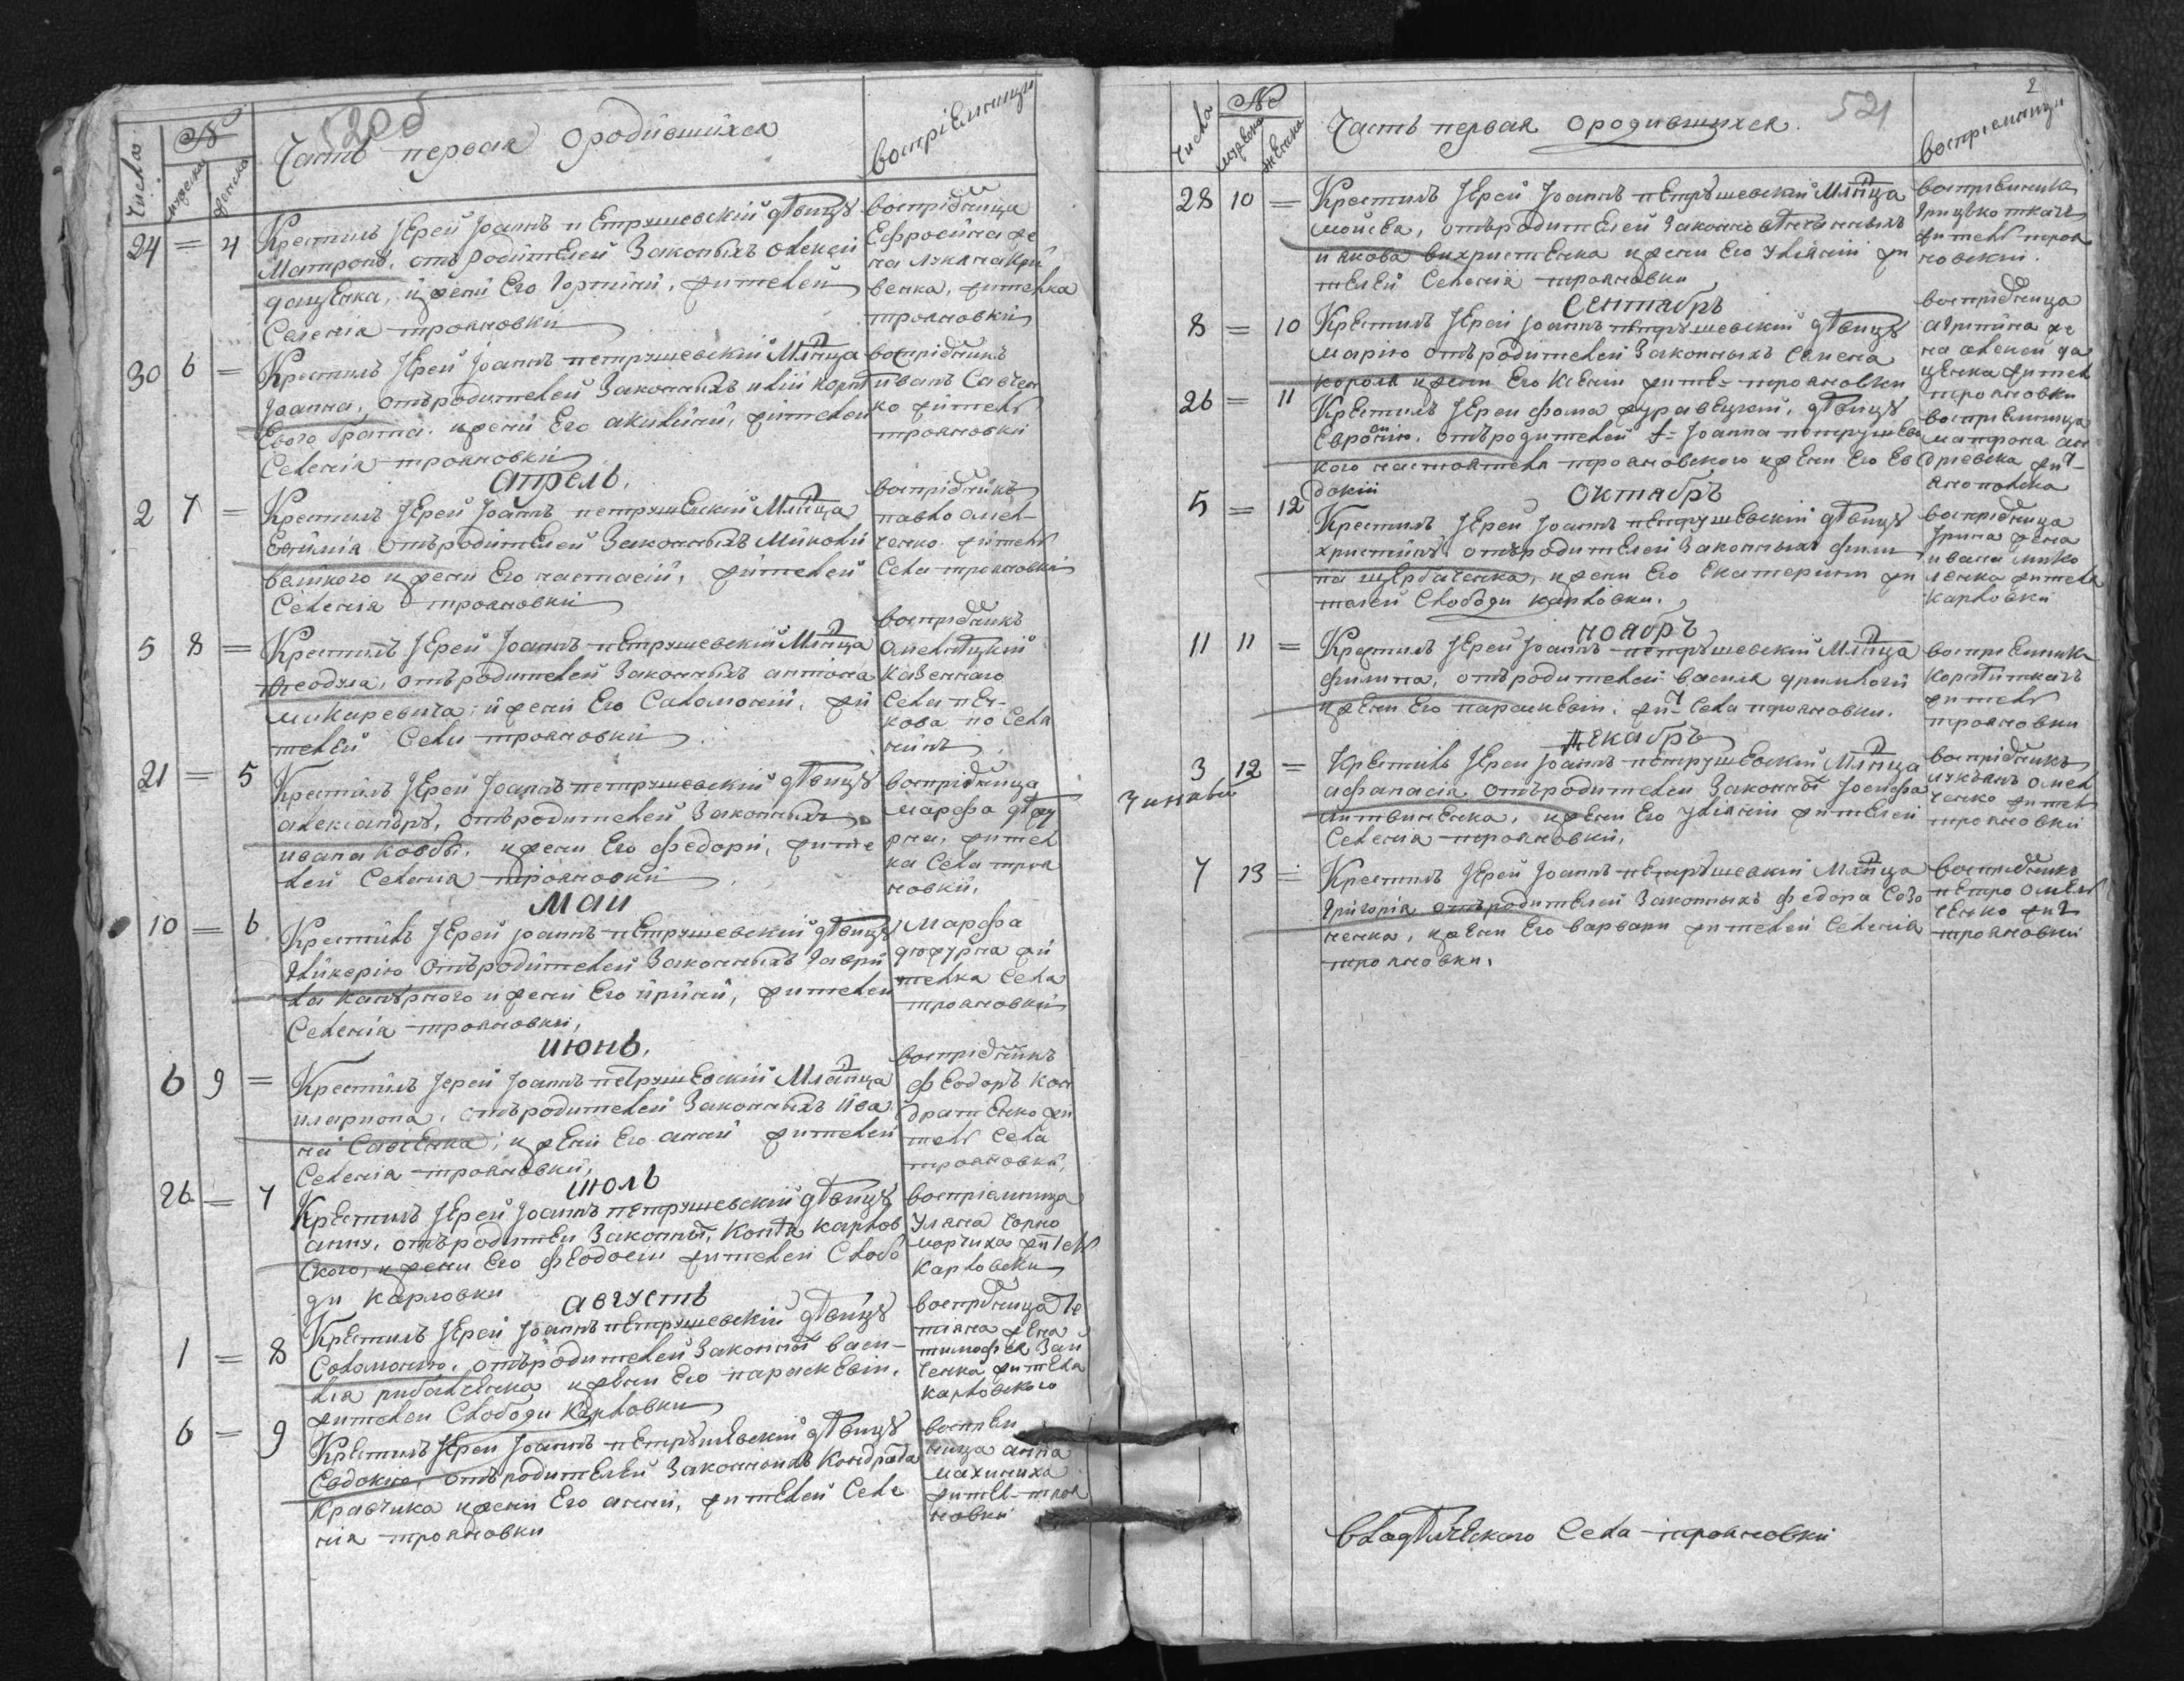 520об
№
Числа
мужеска
женска
Часть перваяОродившихся
воспріемници
24 = 4 Крестилъ Іерей Іоаннъ пЕтрушевскій дѣвицу
Матрону, отъ родителей Законыхъ олексѣи
дацЕнка, и жени Его , жителей
Селенія трояновки
воспріемница
Ефросина же
на лукяна кри
венка, жителка
трояновки
30 6 = Крестилъ Іерей Іоаннъ петрушевскій Млнца
Іоанна, отъ родителей Законныхъ иліи
Евого брата. и жени Его акилини, жителей
Селенія трояновки
воспріемникъ
иванъ Савчен
ко жителъ
трояновки
апрель,
2 7 = Крестилъ Іерей Іоаннъ петрушЕвскій Млнца
Евфимія отъ родителей Законныхъ Миколи
великого и жени Его настасіи, жителей
Селенія трояновки
воспріемникъ
павло омел-
ченко жителъ
Села трояновки
5 8 = Крестилъ Іерей Іоаннъ пЕтрушевскій Млнца
Феодула, отъ родителей Законныхъ антона
макаревича, и жени Его Саломоніи, жи
телей Села трояновки
воспріемникъ
казенного
Села пЕс-
кова по Села
нинъ
21 = 5 Крестилъ Іерей Іоаннъ петрушевскій дѣвицу
александру, отъ родителей Законныхъ
ивана ковбы, и жени Его федори, жите
лей Селенія трояновки
воспріемница
марфа дѣжу
рна, жител
ка Села троя
новки,
Маи
10 = 6 Крестилъ Іерей Іоаннъ пЕтрушевскій дѣвицу
Гликерію отъ родителей Законныхъ Гаври
ла и жени Его ирини, жителей
Селенія трояновки,
Марфа
дюжурна жи
телка Села
трояновки
июнь,
6 9 = Крестилъ Іерей Іоаннъ пЕтрушЕвскій Млнца
илариона, отъ родителей Законныхъ ива
на СавчЕнка, и жЕни Его анни жителей
Селенія трояновки,
воспріемникъ
фЕодоръ Кон
дратЕнко жи
телъ Села
трояновки,
июль
26 = 7 Крестилъ Іерей Іоаннъ петрушевскій дѣвицу
анну, отъ родителей Законны, карлов
ского, и жени Его фЕодосіи жителей Слобо
ди Карловки
воспріемница
Уляна Чорно
морчиха
Карловски
августъ
1 = 8 Крестилъ Іерей Іоаннъ пЕтрушевскій дѣвицу
Соломонию, отъ родителей Законны васи-
лія рибалчЕнка и жени Его параскЕвіи,
жителей Слободи Карловки
воспріемница Те
тіана жЕна
тимофея Зай
ченка жителя
карловского
6 = 9 Крестилъ Іерей Іоаннъ пЕтрушЕвскій дѣвицу
Євдокію, отъ родителей Законныхъ Кондрата
Кравчика и жени Его анни, жителей Селе
нія трояновки
воспрЕм
ница анна
махиниха
жител- троя
новки
2
521
№
Числа
мужеска
женска
Часть первая Ородившихся.
воспріемници
28 10 = Крестилъ Іерей Іоаннъ пЕтрушевскій Млнца
моисЕа, отъ родителей Законно вѣнчанныхъ
иякова вихристЕнка и жени Его Уліяніи жи
телей Селенія трояновки
воспрЕмника
Грицько ткачъ
жителъ троя
новскій.
Сентябръ
8 = 10 Крестилъ Іерей Іоаннъ пЕтрушевскій дѣвицу
марію отъ родителей Законныхъ Семена
короля и жени Его Ксеніи жите= трояновки
воспріемница
же
на олексѣи да
цЕнка жител
трояновки
26 = 11 Крестилъ Іерей фома журавецкий, дѣвицу
Евросінію, отъ родителей і= Іоанна петрушев
кого настоятеля трояновского и жЕни Его Ев
докіи
воспріЕмница
матрона ан
дріевска жи
октябръ
5 = 12 Крестилъ Іерей Іоаннъ пЕтрушЕвскій дѣвицу
христину отъ родителей Законныхъ фили
па щЕрбачЕнка, и жени Его Екатерини жи
телей Слободи карловки.
воспріемница
Ірина жена
ивана мико
ленка жителя
карловки
ноабръ
11 11 = Крестилъ Іерей Іоаннъ пЕтрушевскій Млнца
филипа, отъ родителей василя
и жЕни Его параскЕвіи, жи= Села трояновки.
воспріЕмника
ткачъ
жителъ
трояновки
дЕкабръ
3 12 = Крестилъ Іерей Іоаннъ пЕтрушЕвскій Млнца
афанасія отъ родителей Законны Іосифа
литвинЕнка, и жЕни Его Уліяніи жителей
Селенія трояновки,
воспріемникъ
лукъянъ омел
ченко жителъ
трояновки
7 13 = Крестилъ Іерей Іоаннъ пЕтрушевскій Млнца
Григорія отъ родителей Законныхъ федора Созо
ненка, и жЕни Его варвари жителей Селенія
трояновки.
воспріемникъ
пЕтро омЕл
ченко жит
трояновки
владѣлчЕского Села трояновки